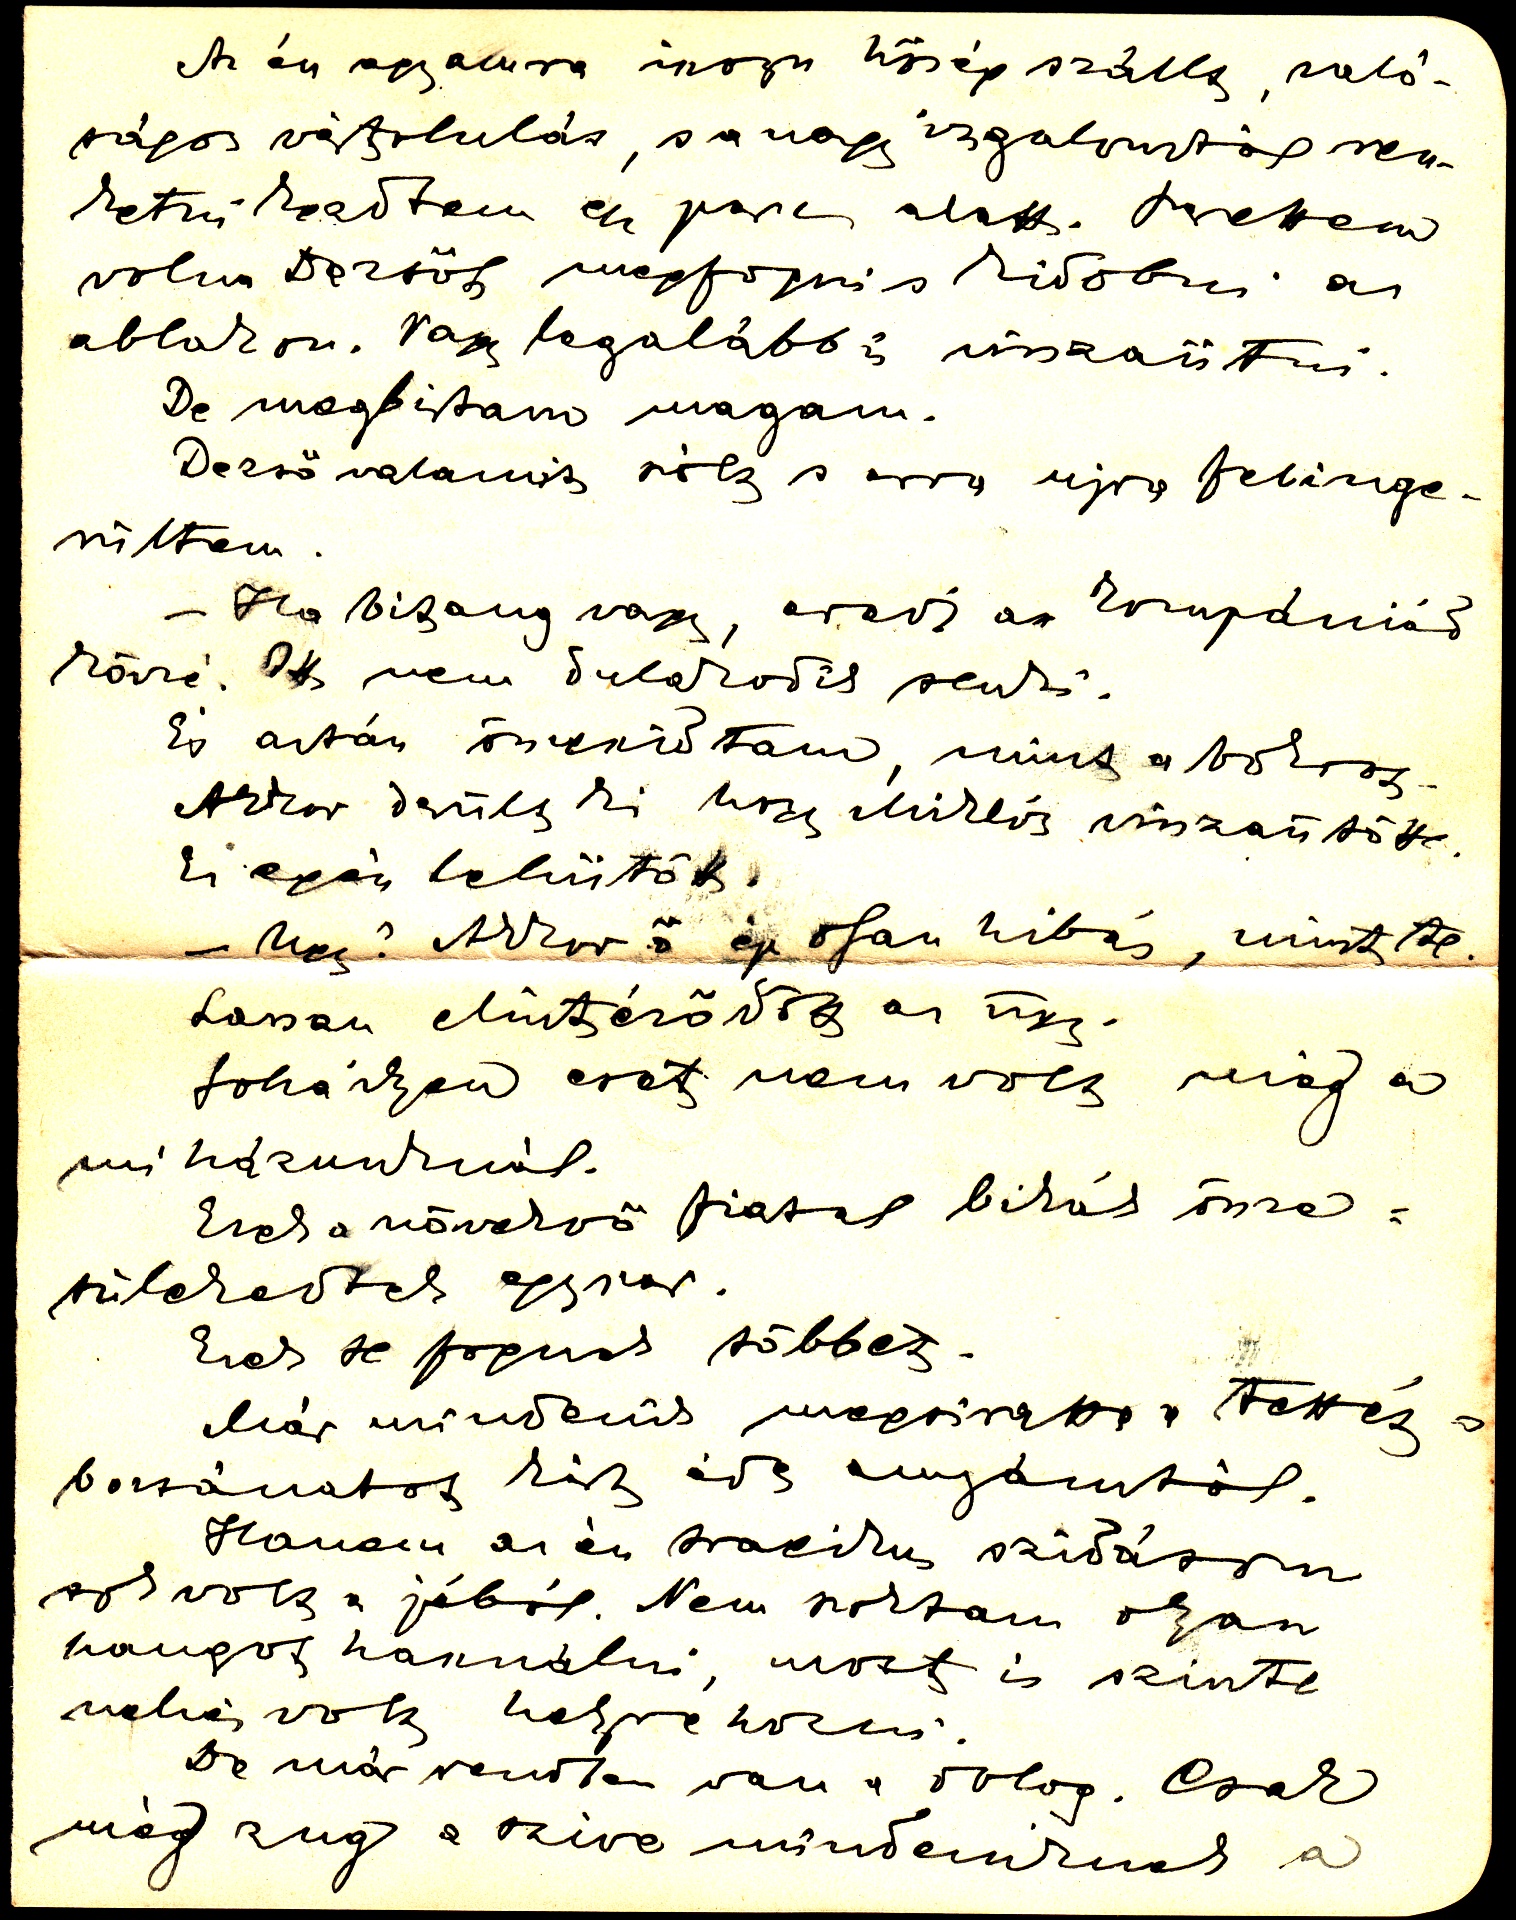 Az én agyamra iszonyu hőség szállt, való-
ságos vértolulás, s a nagy izgalomtól resz-
ketni kezdtem egy perc alatt. Szerettem
volna Dezsőt megfogni s kidobni az
ablakon. Vagy legalább is visszaütni.
De megbirtam magam.
Dezső valamit szólt s arra ujra felinge-
rültem.
— Ha bitang vagy, eredj a kompániád
közzé. Itt nem dulakodik senki.
És aztán összeszidtam, mint a bokrot.
Akkor derült ki hogy Miklós visszaütött.
Ez egyén lehütött.
— Ugy? Akkor ő ép olyan hibás, mint te.
Lassan elintéződött az ügy.
Soha ilyen eset nem volt még a
mi házunknál.
Ezek a növekvő fiatal bikák össze-
tülekedtek egyszer.
Ezek se fognak többet.
Már mindenik megsiratta a tettét s
bocsánatot kért édes anyámtól.
Hanem az én tragikus szidásom
sok volt a jóból. Nem szoktam olyan
hangot használni, most is szinte
nehéz volt helyre hozni.
De már rendben van a dolog. Csak
még zug a szive mindeniknek a